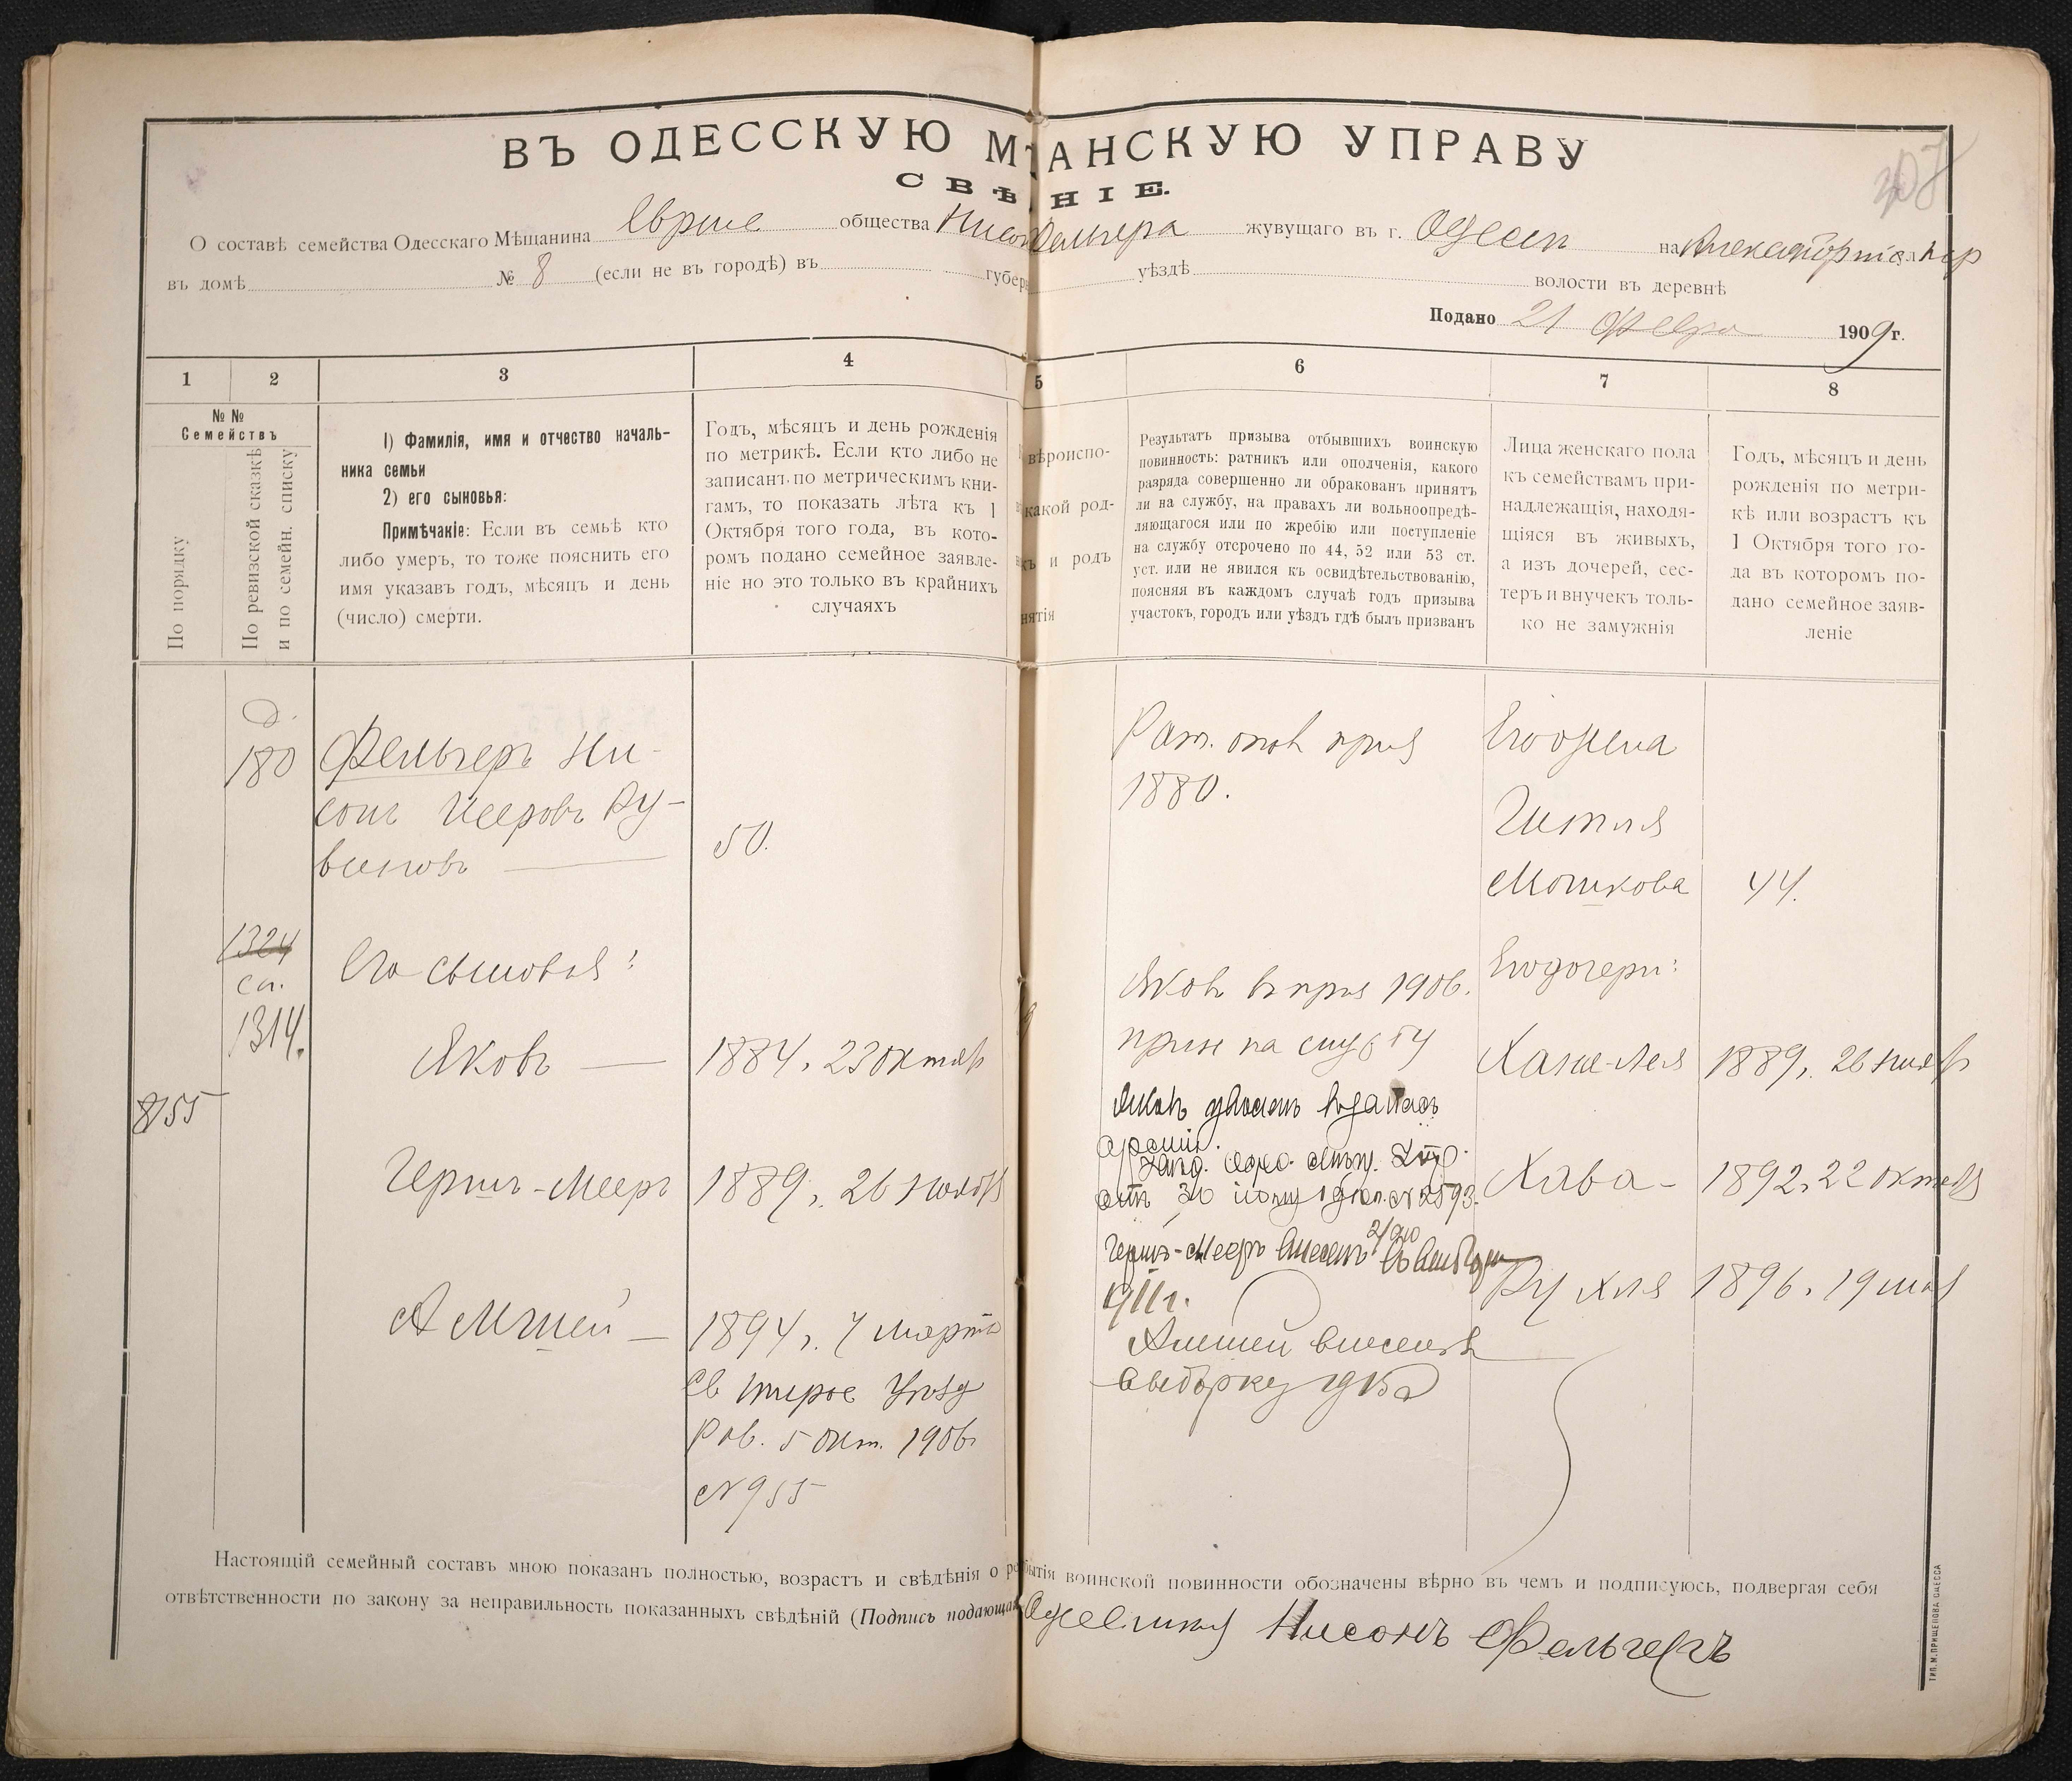 ВЪ ОДЕССКУЮ М АНСКУЮ УПРАВУ
СВѢ НІЕ.
О составѣ семейства Одесскаго Мѣщанина Еврше общества Нисон Фельгера жувущаго въ г. Одессѣ на
въ домѣ № 8 (если не въ городѣ) въ губер уѣздѣ волости въ деревнѣ
Подано 21 Февра 1909 г.
1 2 3 4 5 6 7 8
№ №
Семействъ
По порядку
По ревизской сказкѣ
и по семейн. списку
1) Фамилія, имя и отчество началь-
ника семьи
2) его сыновья:
Примѣчаніе: Если въ семьѣ кто
либо умеръ, то тоже пояснить его
имя указавъ годъ, мѣсяцъ и день
(число) смерти.
Годъ, мѣсяцъ и день рожденія
по метрикѣ. Если кто либо не
записанъ по метрическимъ кни-
гамъ, то показать лѣта къ 1
Октября того года, въ кото-
ромъ подано семейное заявле-
ніе но это только въ крайнихъ
случаяхъ
вѣроиспо-
какой род-
къ и родъ
нятія
Результатъ призыва отбывшихъ воинскую
повинность: ратникъ или ополченія, какого
разряда совершенно ли обракованъ принятъ
ли на службу, на правахъ ли вольноопредѣ-
ляющагося или по жребію или поступленіе
на службу отсрочено по 44, 52 или 53 ст.
уст. или не явился къ освидѣтельствованію,
поясняя въ каждомъ случаѣ годъ призыва
участокъ, городъ или уѣздъ гдѣ былъ призванъ
Лица женскаго пола
къ семействамъ при-
надлежащія, находя-
щіяся въ живыхъ,
а изъ дочерей, сес-
теръ и внучекъ толь-
ко не замужнія
Годъ, мѣсяцъ и день
рожденія по метри-
кѣ или возрастъ къ
1 Октября того го-
да въ которомъ по-
дано семейное заяв-
леніе
180
1324
сп.
1314.
8155
Фельгеръ Ни-
сонъ Иееровъ Ру-
виновъ
Его сыновья:
Яковъ —
Гершъ-Мееръ
Амшей —
50.
1884, 23 октяб
1889, 26 нояб
1894 г. 7 марта
Рав. 5 Окт. 1906
№ 955
Рат. опол приз
1880.
Яковъ въ приз 1906.
прин на службу
Гершъ-Мееръ внесенъ
1911 г.
Амшей внесенъ
выборку
Его жена
Гитля
Мошкова
Его дочери:
Хана-Лея
Хава -
Рухля
44.
1889, 26 нояб
1892, 22 октяб
1896, 19 мая
Настоящій семейный составъ мною показанъ полностью, возрастъ и свѣдѣнія о бытія воинской повинности обозначены вѣрно въ чемъ и подписуюсь, подвергая себя
ответственности по закону за неправильность показанныхъ свѣдѣній (Подпись подающа Нисонъ Фельгеръ
ТИП. М. ПРИЩЕПОВА ОДЕССА